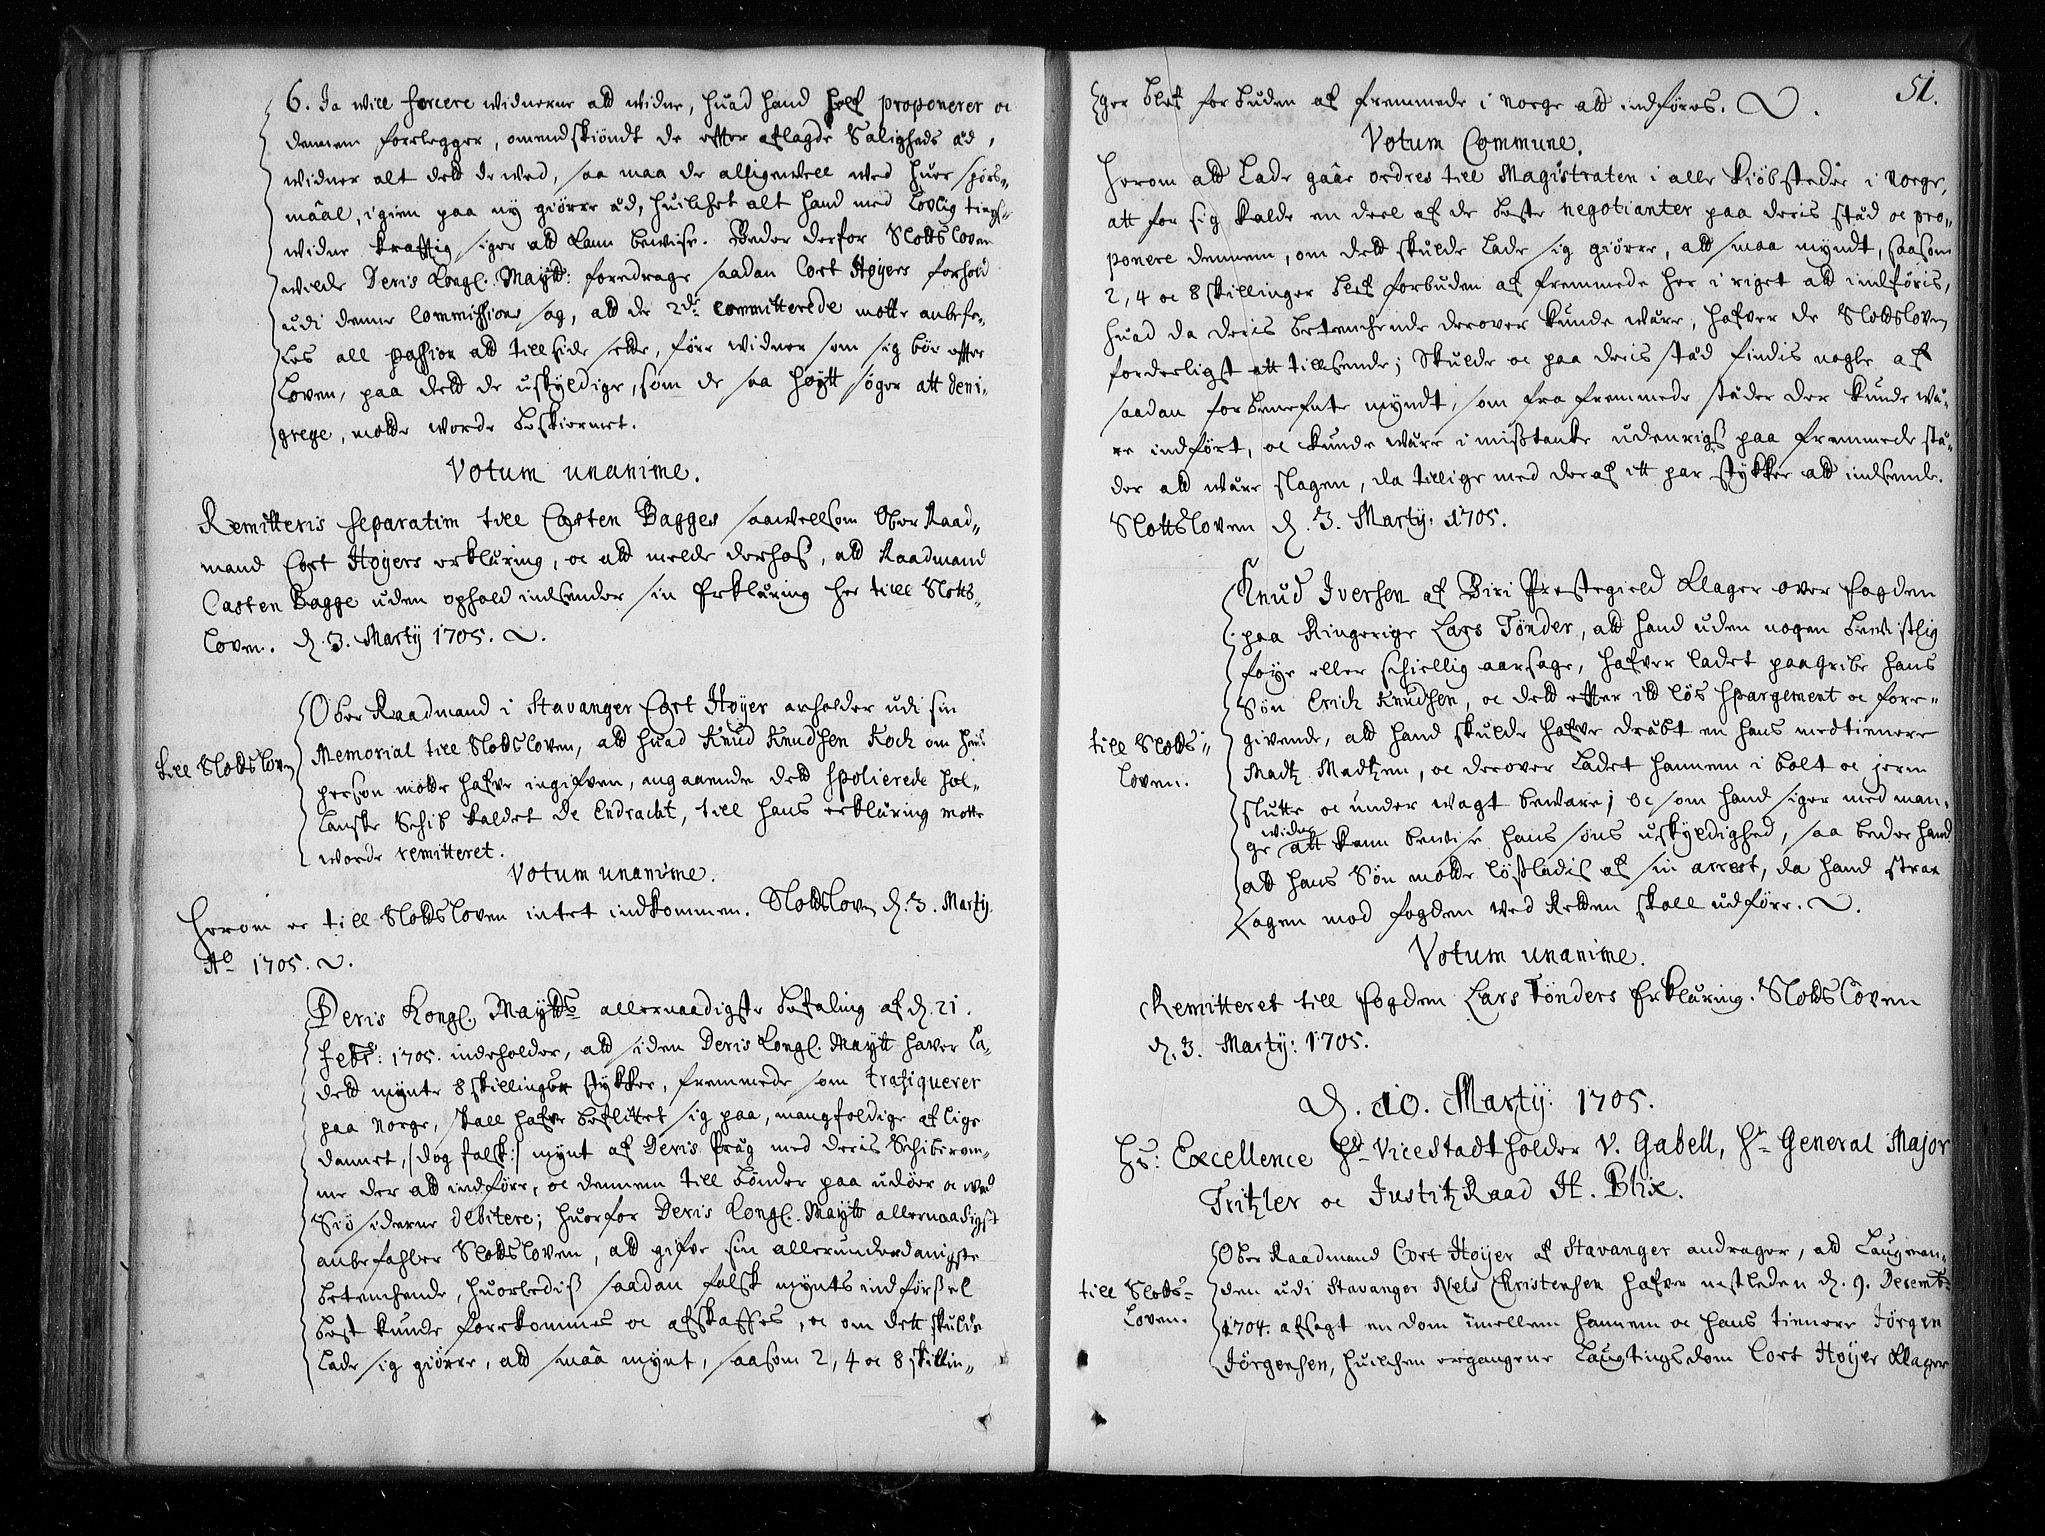 6. Ja will forcere widnerne att widne, huad hand self proponerer oc
dennem forelegger, omendskiöndt de effter aflagde Saligheds æd,
widner alt dett de wed, saa maa de alligewell wed huer spörs-
maal, igien paa ny giörre æd, huilchet alt hand med Lovlig tings-
widne krafftig siger att kan bewise. Beder derfor Slottsloven
wilde Deris Kongl. Maytt: foredrage saadan Cort Höyers forhold
udi denne Commissions sag, att de 2de committerede motte anbefa-
les all passion att till side sette, före widner som sig bör effter
Loven, paa dett de uskyldige, som de saa höytt söger att deni-
grere, motte worde beskiermet.
Votum unanime.
Remitteris separatim till Casten Bagges saawellsom Ober Raad-
mand Cort Höyers erklæring, oc att melde derhos, att Raadmand
Casten Bagge uden ophold indsender sin Erklæring her till Slotts-
loven. D. 3. Martij 1705.
till Slottsloven
Ober Raadmand i Stavanger Cort Höyer anholder udi sin
Memorial till Slottsloven, att huad Knud Knudsen Koch om hans
person motte hafve ingifven, angaaende dett spolierede hol-
landske Schib kaldet De Endracht, till hans erklæring motte
worde remitteret.
Votum unanime.
Herom er till Slottsloven intet indkommen. Slottsloven d. 3. Martij
Ao 1705.
Deris Kongl. Maytts allernaadigste befaling af d. 21.
Febr: 1705. indeholder, att siden Deris Kongl. Maytt haver la-
dett mynte 8 skillings stykker, fremmede som trafiquerer
paa Norge, skall hafve beflittet sig paa, mangfoldige af lige
dannet, /:dog falsk:/ mynt af Deris Præg med deris Schiberom-
me der att indföre, oc dennem till bönder paa udöer oc ved
Siö siderne debitere; huorfor Deris Kongl. Maytt allernaadigst
anbefahler Slottsloven, att gifve sin allerunderdanigste
betenchende, huorledis saadan falsk mynts indförsel
best kunde forekommes oc afskaffes, oc om dett skulde
lade sig giörre, att smaa mynt, saasom 2, 4 oc 8 skillin-
51.
ger blef forbuden af fremmede i Norge att indföres.
Votum Commune.
Herom att Lade gaae ordres till Magistraten i alle kiöbstæder i Norge,
att for sig kalde en deel af de beste negotianter paa deris stæd oc pro-
ponere dennem, om dett skulde lade sig giörre, att smaa myndt, saasom
2, 4 oc 8 skillinger blef forbuden af fremmede her i riget att indföris,
huad da deris betenchende derover kunde være, hafver de Slottsloven
forderligst att tillsende; Skulde oc paa deris stæd findis nogle af
saadan forbenefnte myndt, som fra fremmede stæder der kunde wæ-
re indfört, oc kunde være i mistanke udenrigs paa fremmede stæ-
der att være slagen, da tillige med deraf itt par stykker att indsende.
Slottsloven d. 3. Martij: 1705.
till Slotts-
loven.
Knud Iversen af Biri Prestegield klager over fogden
paa Ringerige Lars Tönder, att hand uden nogen bewislig
föye eller schiellig aarsage, hafver ladet paagribe hans
Sön Erich Knudsen, oc dett effter itt lös spargement oc fore-
givende, att hand skulde hafve dræbt en hans medtienere
Madtz Madtzen, oc derover ladet hannem i bolt oc jern
slutte oc under wagt beware; oc som hand siger med man-
ge widne att kan bewise hans söns uskyldighed, saa beder hand
att hans Sön motte lösladis af sin arrest, da hand strax
sagen mod fogden ved Retten skall udföre.
Votum unanime.
Remitteret till fogden Lars Tönders Erklæring. Slottsloven
d. 3. Martij: 1705.
D. 10. Martij: 1705.
Hs: Excellence Hr Vicestadtholder V. Gabell, Hr General Major
Tritzler oc Justitz Raad H. Blix.
till Slotts-
loven.
Ober Raadmand Cort Höyer af Stavanger andrager, att Laugman-
den udi Stavanger Niels Christensen hafver nestleden d. 9. Decemb:
1704. afsagt en dom imellem hannem oc hans tienere Jörgen
Jörgensen, huilchen ergangene Laugtingsdom Cort Höyer klager